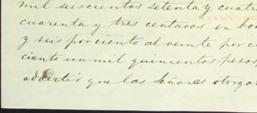 mil seiscientos setenta y cuatr
cuarenta y tres centavos en bo
y seis por ciento al veinte por ci
ciento un mil quinientos pesos
advertir que los Señores otorga